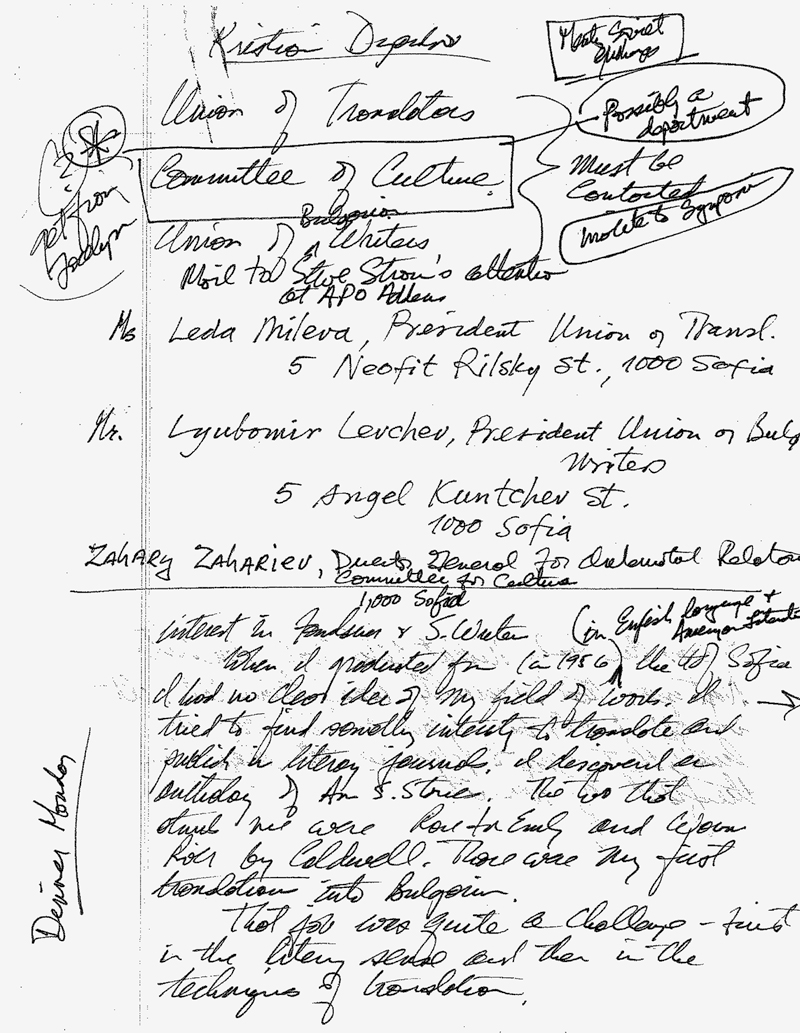 Kristian
Union of
Possibly a
department
Committee of Culture
Must be
Contacted
Invite to
get from
Bulgarian
Union of Writers
Mail to Steve attention
at APO
Ms Leda Mileva, President Union of Transl.
5 Neofit Rilsky St., 1000 Sofia
Mr. Lyubomir Levchev, President Union of Bulg
Writers
5 Angel Kuntchev St.
1000 Sofia
ZAHARY ZAHARIEV, Director General for Relation
Committee for Culture
1,000 Sofia
interest in & S. (in English language &
When I graduated from (in 1956) the U of Sofia
I had no clear idea of my field of work. I
tried to find something interesting to translate and
publish in literary journals. I discovered an
anthology of Am S. The two that
struck me were Rose for Emily and
by Caldwell. These were my first
translation into Bulgarian.
That job was quite a challenge – first
in the literary sense and then in the
techniques of translation.
Dinner Monday